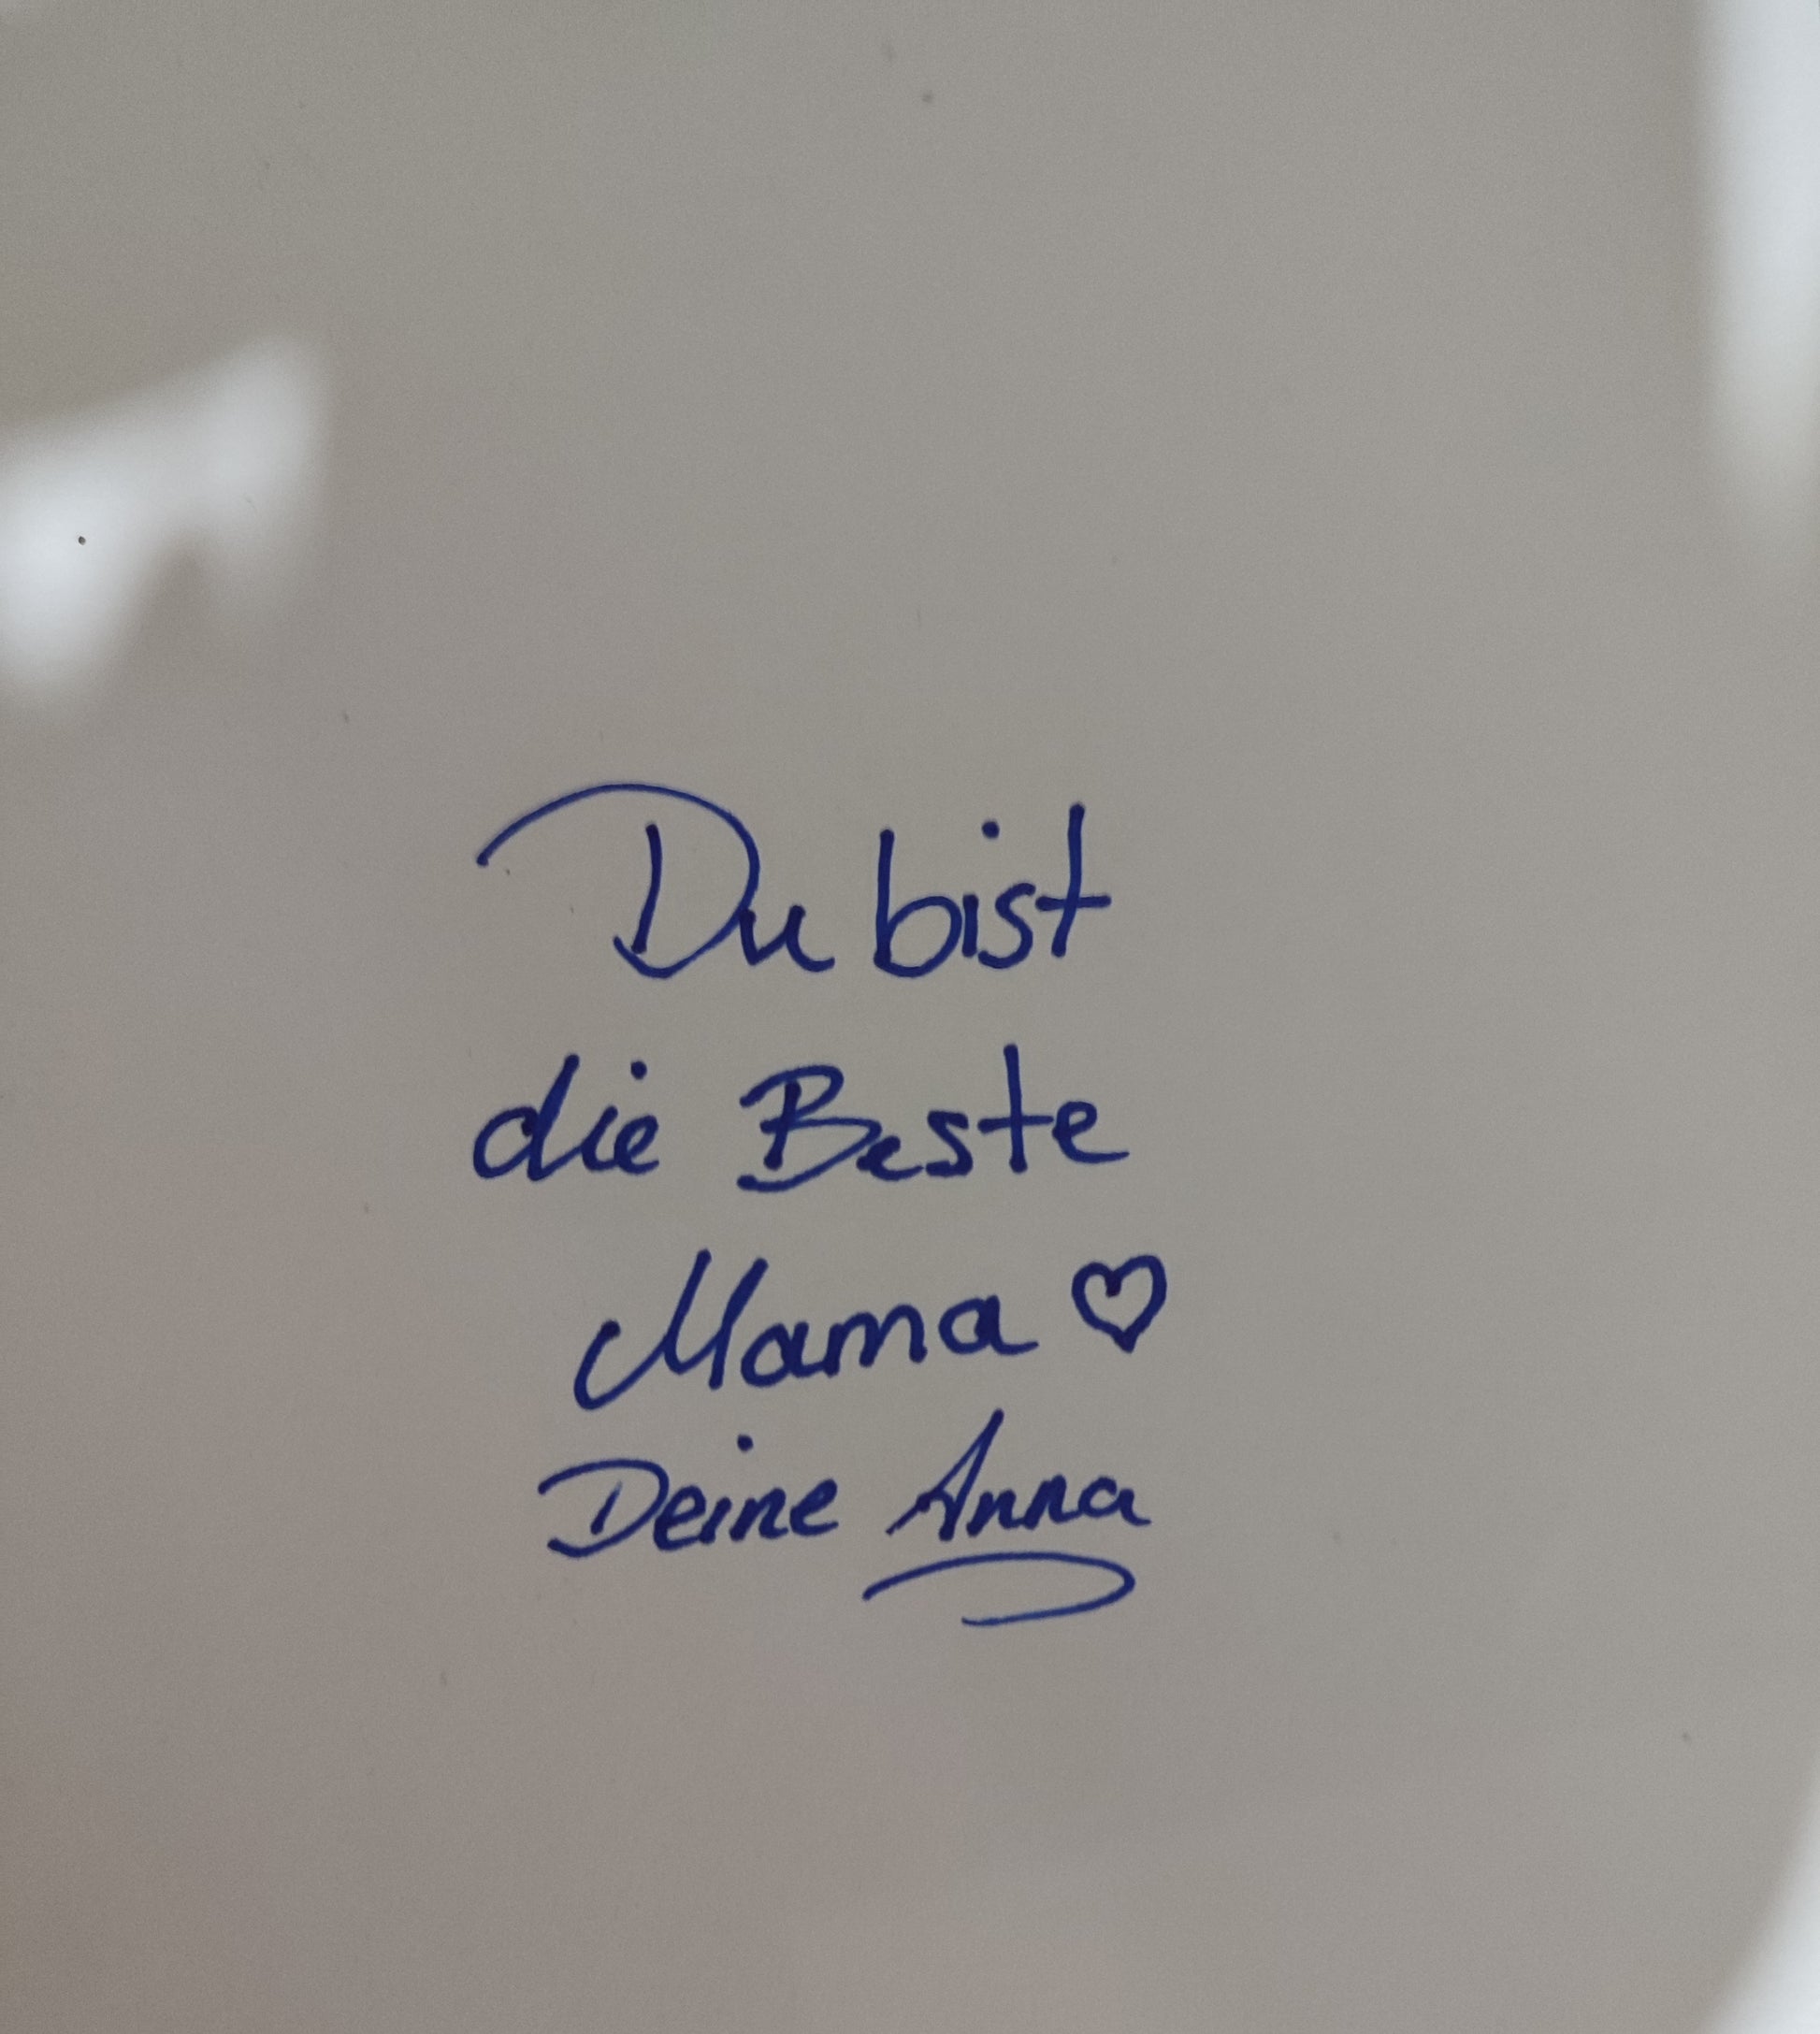 Du bist
die Beste
Mama ♡
Deine Anna